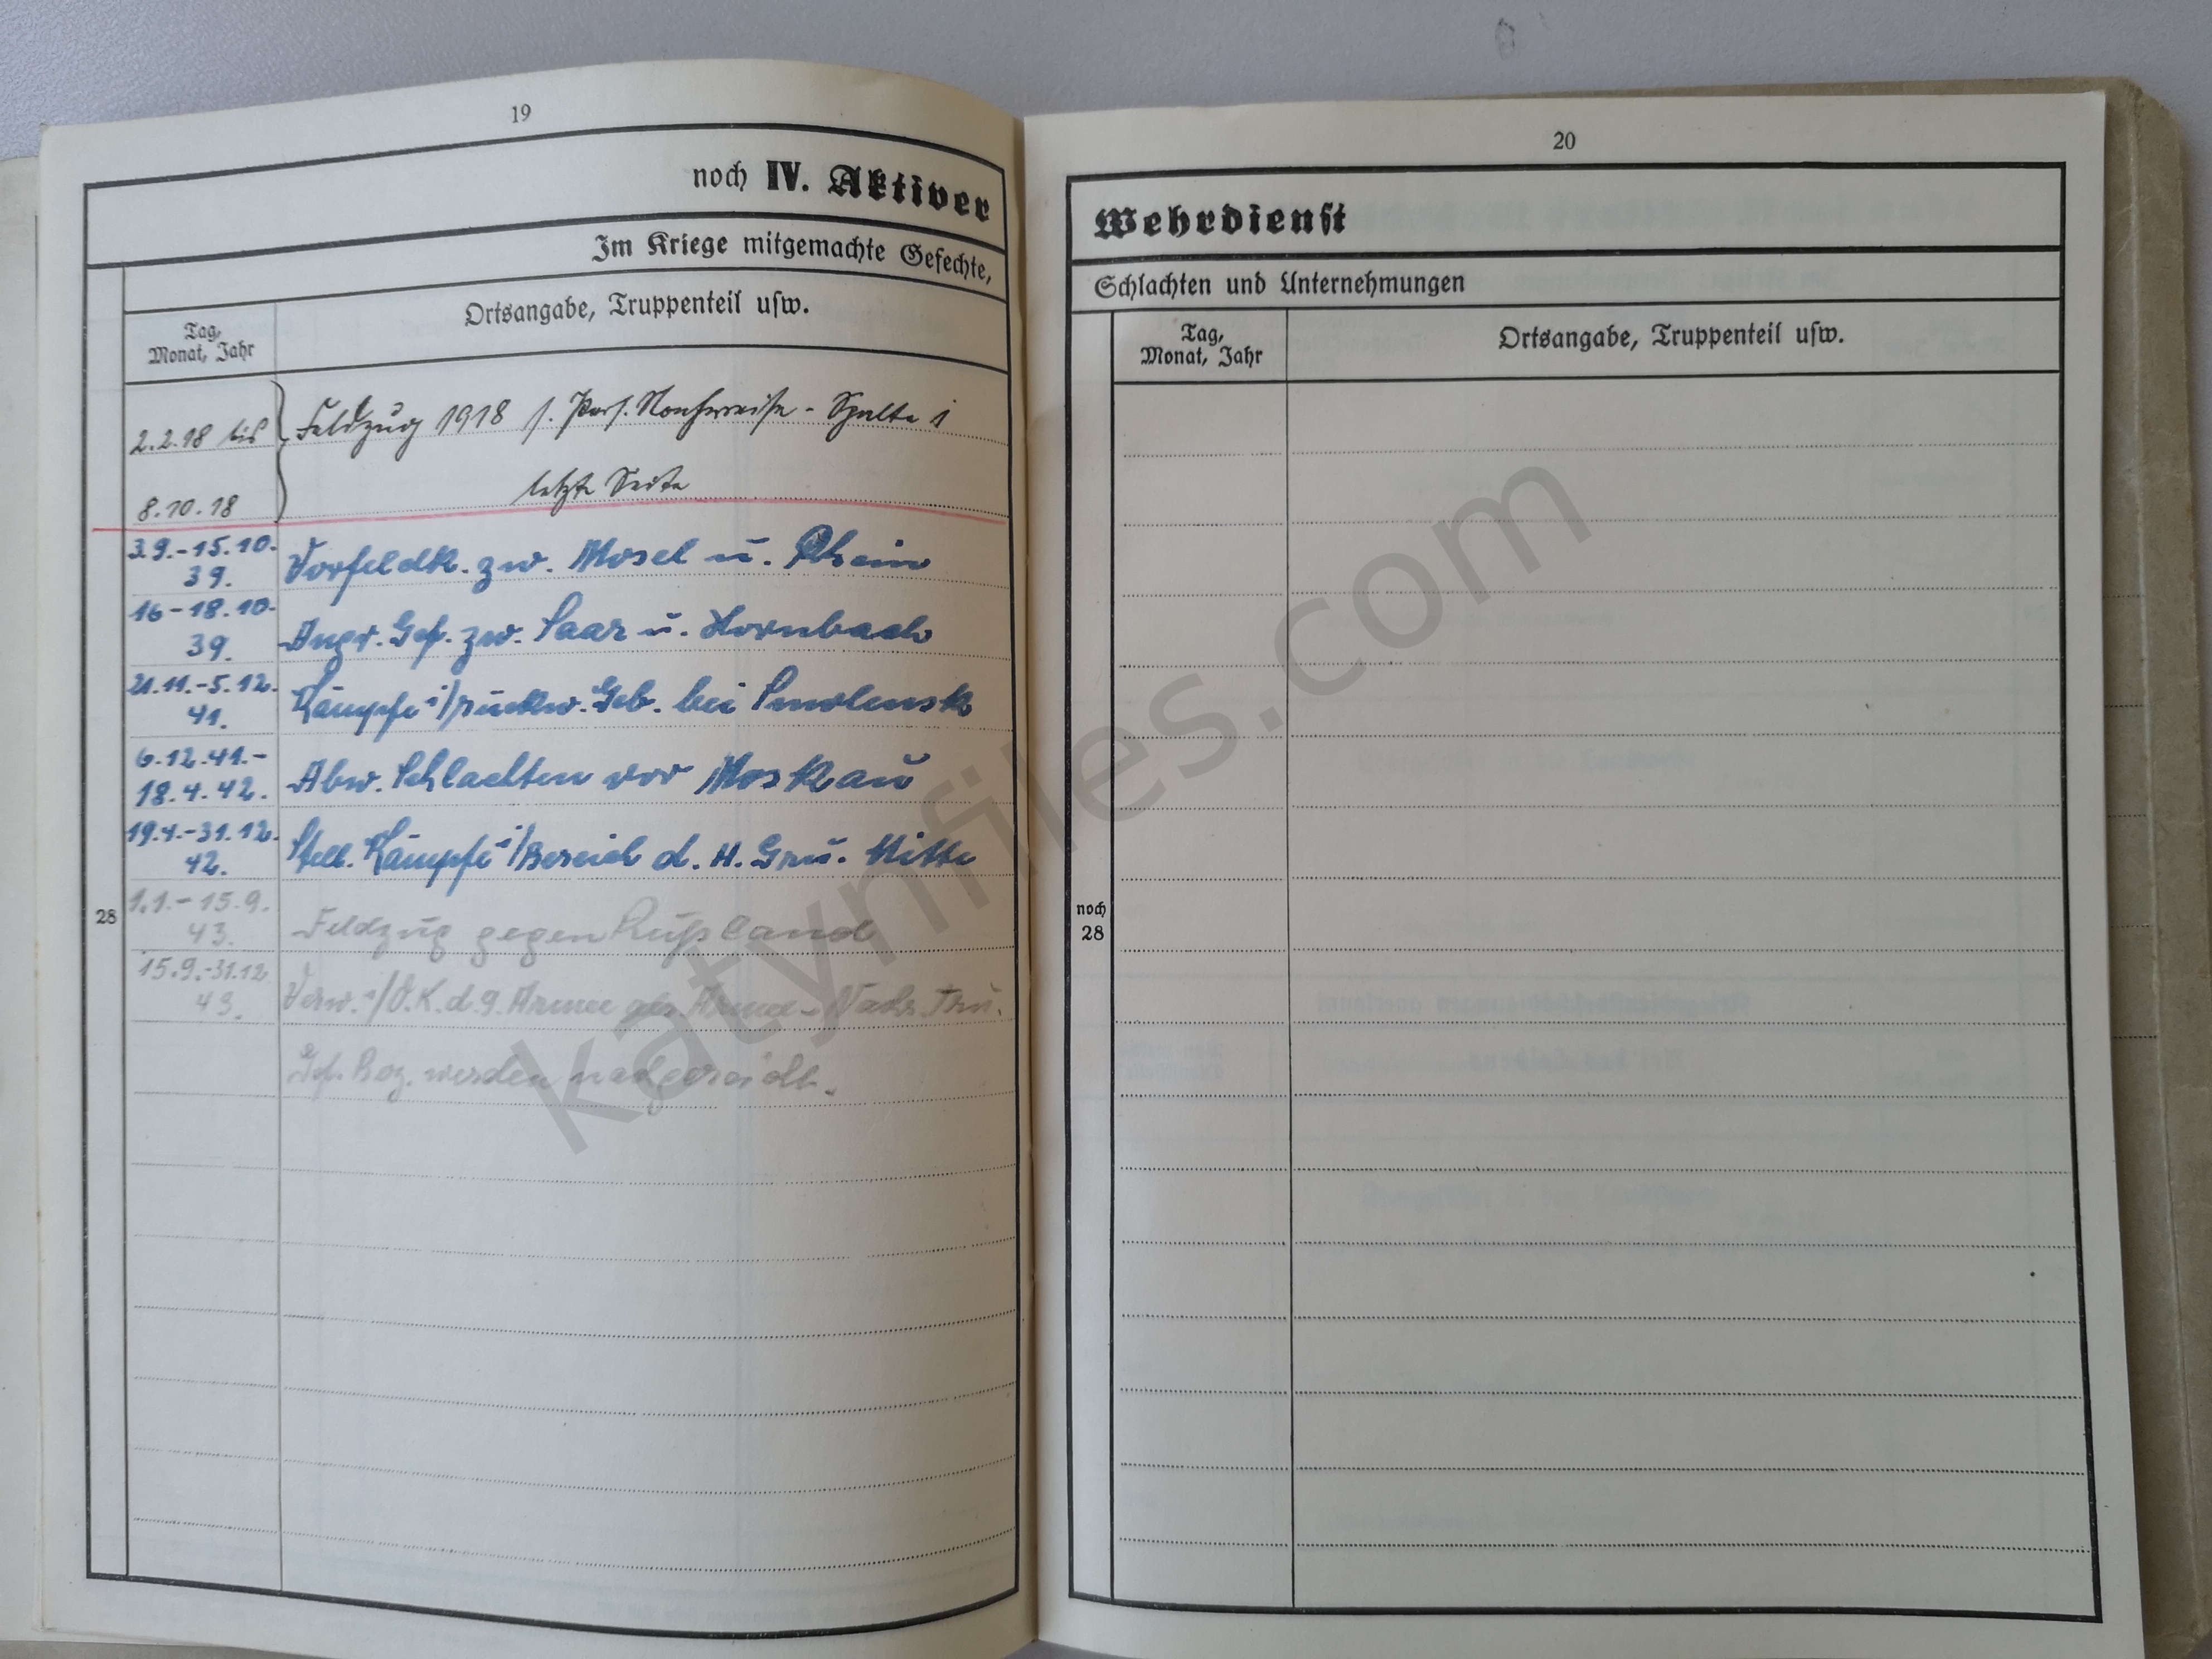 19
noch IV. Aktiver
Im Kriege mitgemachte Gefechte,
Tag,
Monat, Jahr
Ortsangabe, Truppenteil usw.
2.2.18 bis
Feldzug 1918 s. Pers. Nachweise - Spalte i
8.10.18
letzte Seite
3.9.-15.10.
39.
Vorfeldk. zw. Mosel u. Rhein
16-18.10.
39.
Angr. Gef. zw. Saar u. Hornbach
21.11.-5.12.
41.
Kämpfe i/rückw. Geb. bei Smolensk
6.12.41.-
18.4.42.
Abw. Schlachten vor Moskau
19.4.-31.12.
42.
Stell. Kämpfe i/Bereich d. H. Gru. Mitte
28
1.1.-15.9.
43.
Feldzug gegen Rußland
15.9.-31.12
43.
Verw. i/O.K. d. 9. Armee als Armee-Nachr. Fhr.
Gef. Bez. werden nachgereicht.
20
Wehrdienst
Schlachten und Unternehmungen
Tag,
Monat, Jahr
Ortsangabe, Truppenteil usw.
noch
28
katynfiles.com